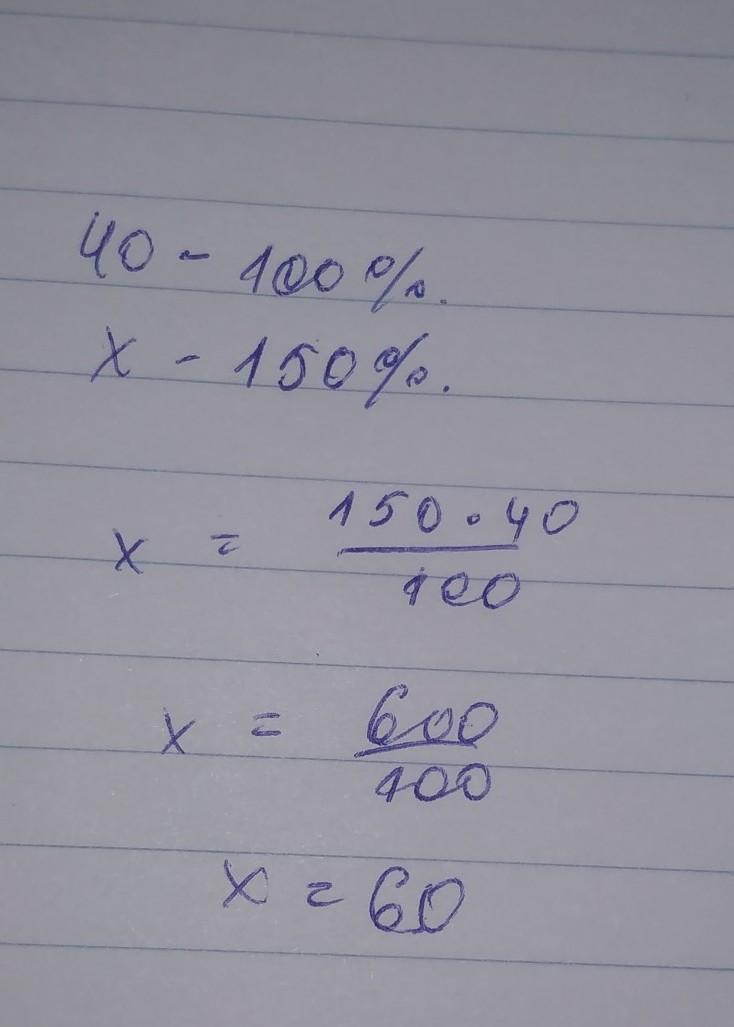 40 - 100%.
x - 150%.
x = 150 · 40 / 100
x = 600 / 100
x = 60